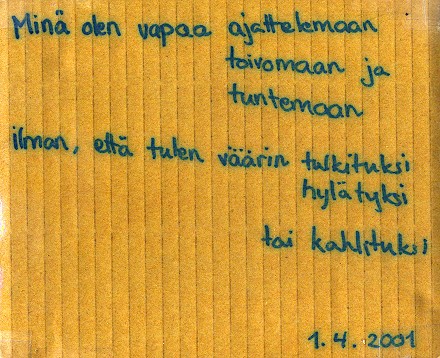 Minä olen vapaa ajattelemaan
toivomaan ja
tuntemaan
ilman, että tulen väärin tulkituksi
hylätyksi
tai kahlituksi
1.4.2001